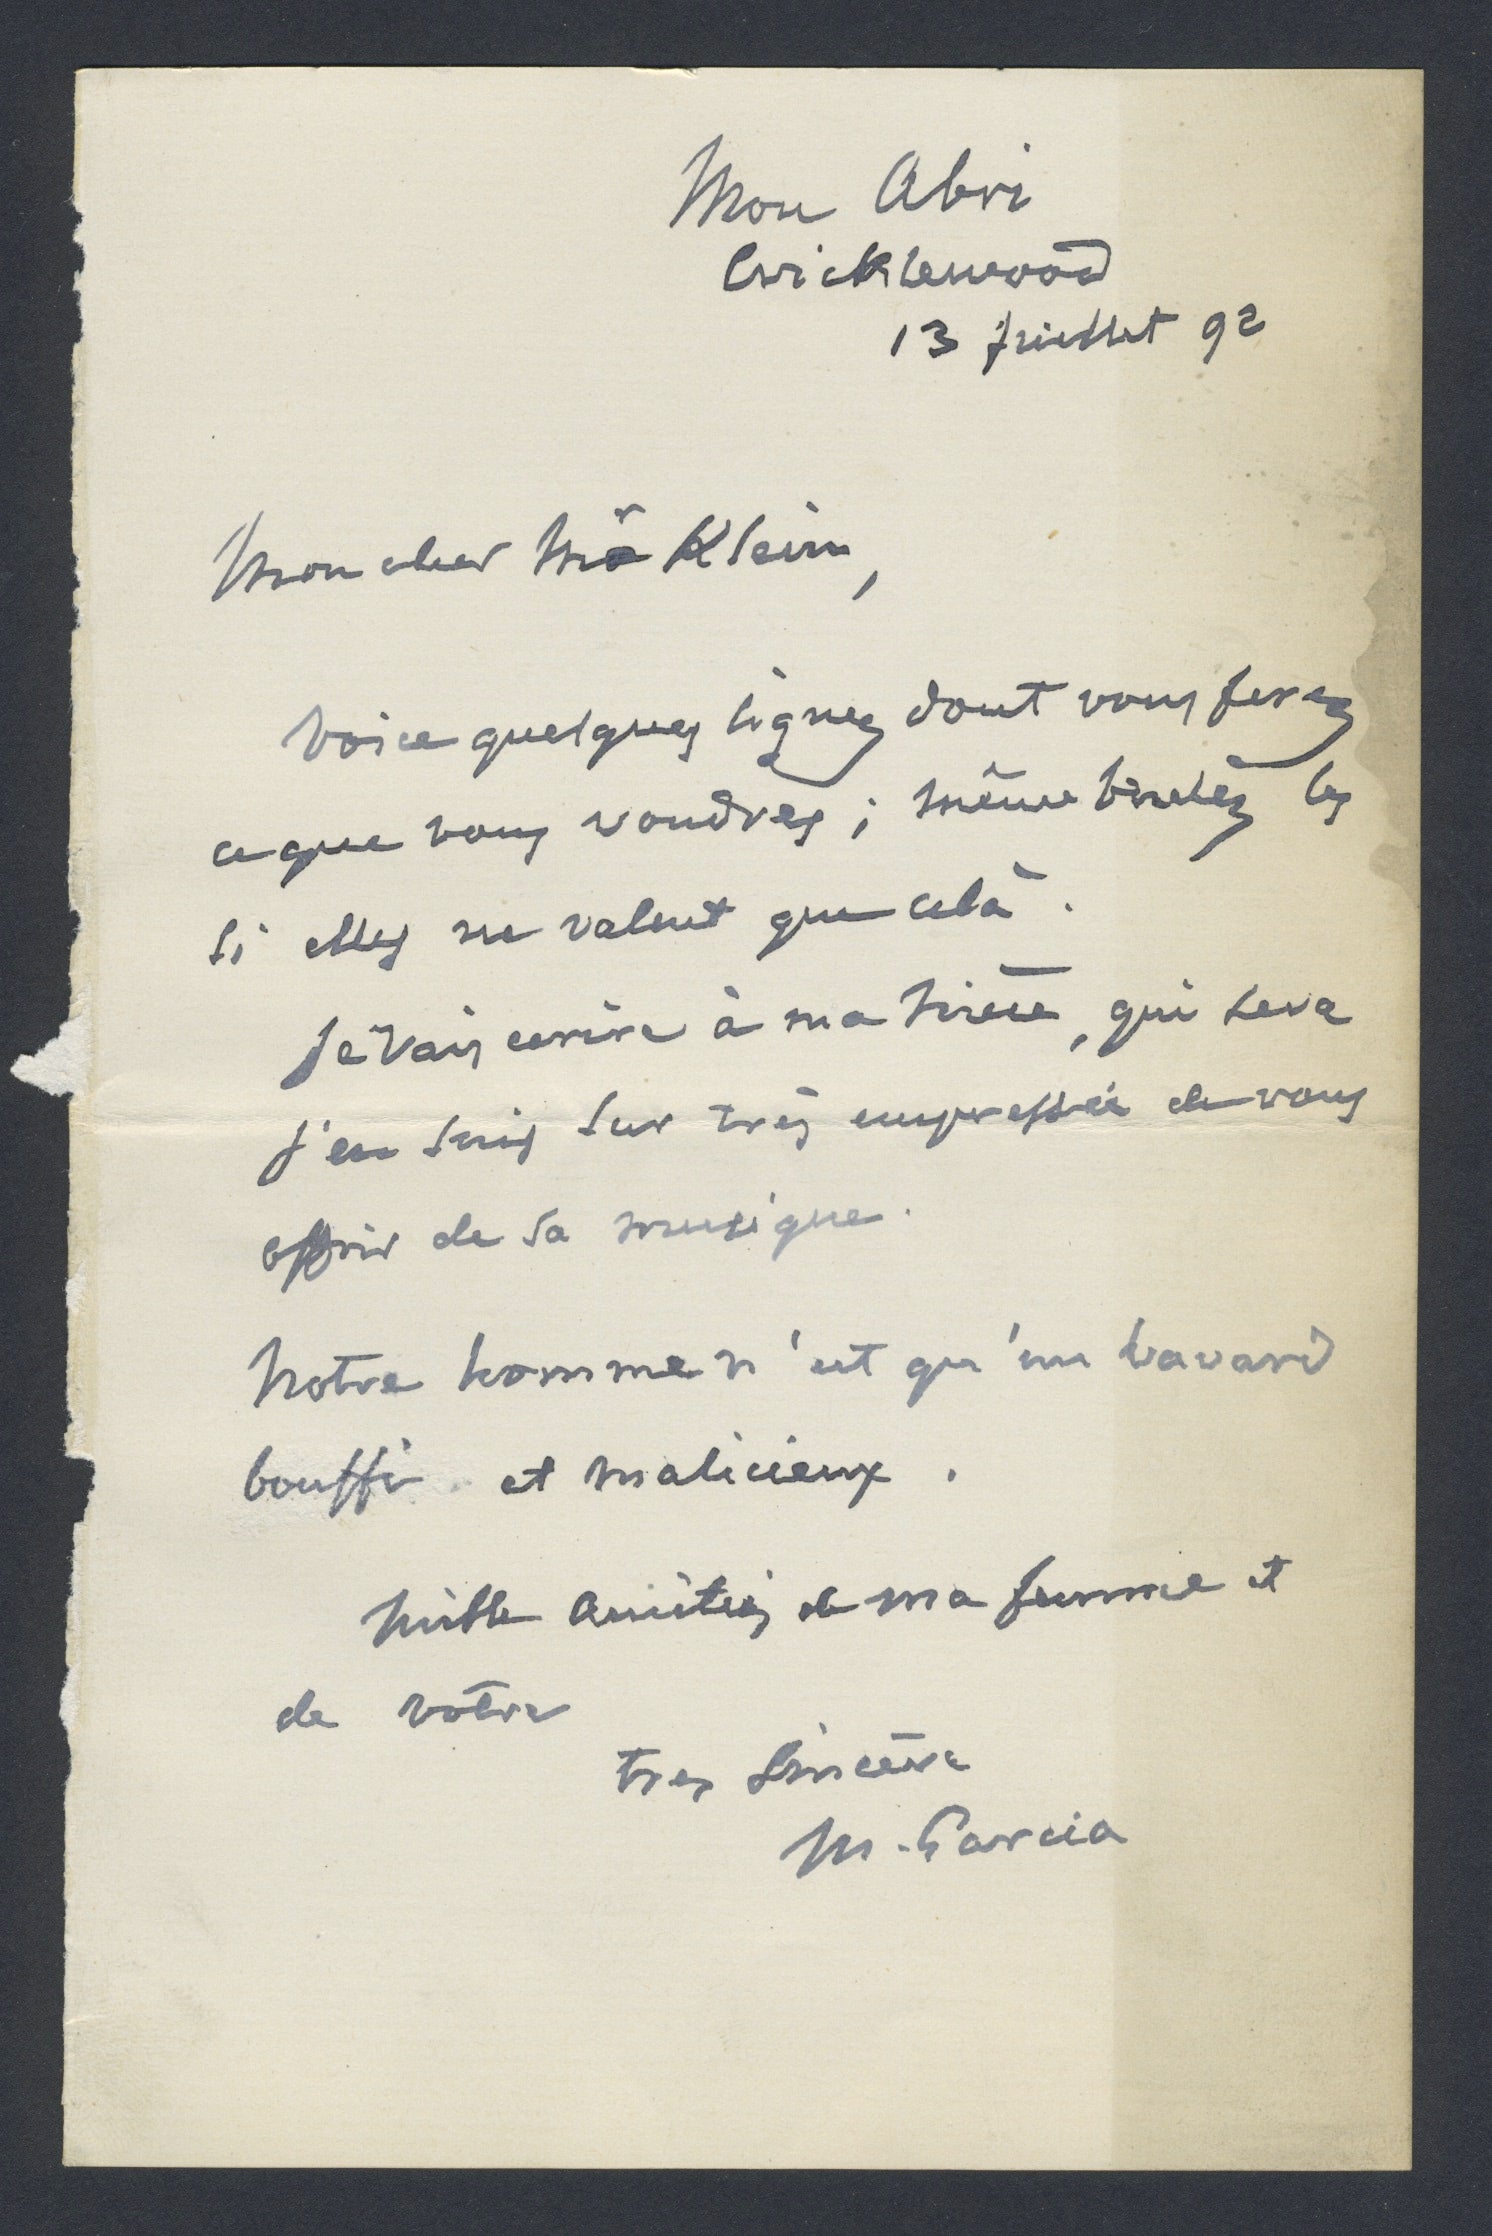 Mon Abri
Cricklewood
13 Juillet 92
Mon cher Mr Klein,
Voice quelques lignes dont vous ferez
ce que vous voudrez ; même bruléz les
si elles ne valent que celà .
Je vais ecrire à ma nièce, qui sera
j'en suis sur très empressée de vous
offrir de sa musique .
Notre homme n'est qu'un bavard
bouffi et malicieux .
Mille amitiés de ma femme et
de votre
tres sincère
M. Garcia